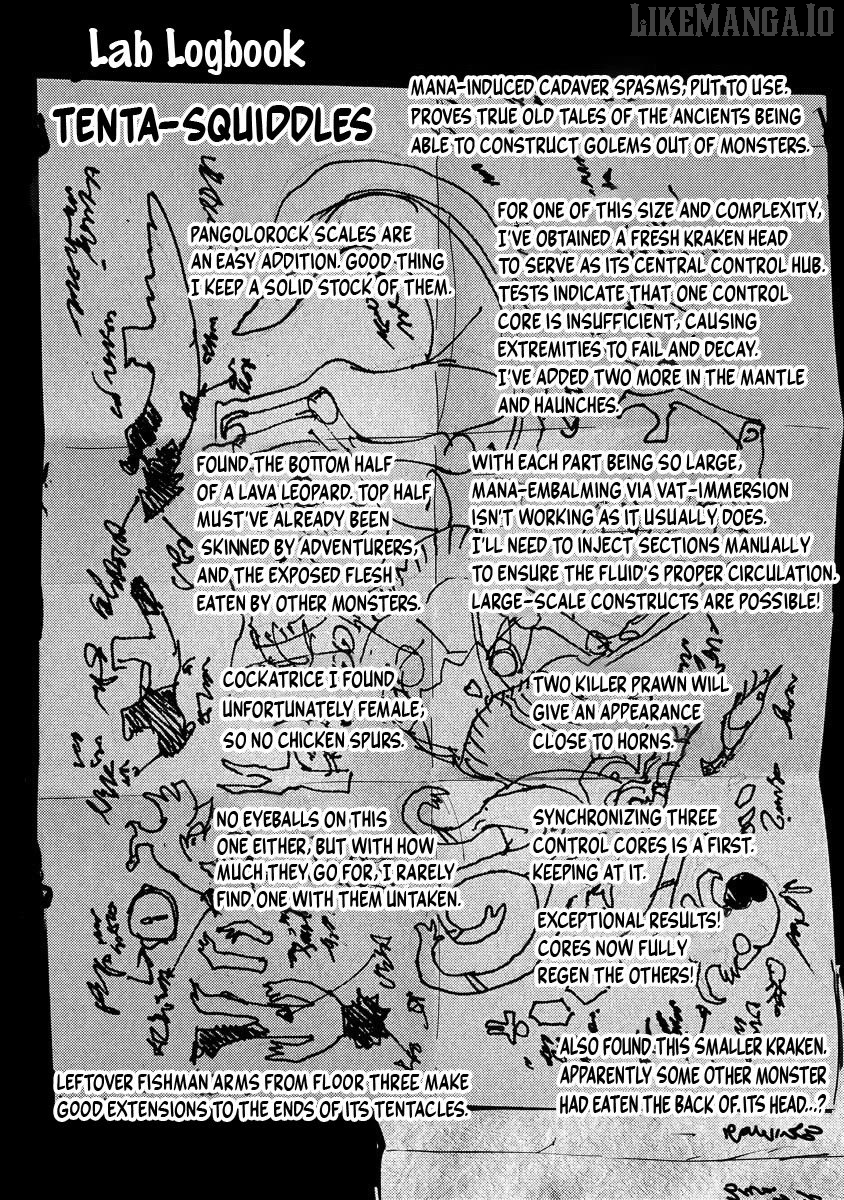 LIKEMANGA.IO
Lab Logbook
TENTA-SQUIDDLES
MANA-INDUCED CADAVER SPASMS, PUT TO USE.
PROVES TRUE OLD TALES OF THE ANCIENTS BEING
ABLE TO CONSTRUCT GOLEMS OUT OF MONSTERS.
PANGOLOROCK SCALES ARE
AN EASY ADDITION. GOOD THING
I KEEP A SOLID STOCK OF THEM.
FOR ONE OF THIS SIZE AND COMPLEXITY,
I'VE OBTAINED A FRESH KRAKEN HEAD
TO SERVE AS ITS CENTRAL CONTROL HUB.
TESTS INDICATE THAT ONE CONTROL
CORE IS INSUFFICIENT, CAUSING
EXTREMITIES TO FAIL AND DECAY.
I'VE ADDED TWO MORE IN THE MANTLE
AND HAUNCHES.
FOUND THE BOTTOM HALF
OF A LAVA LEOPARD. TOP HALF
MUST'VE ALREADY BEEN
SKINNED BY ADVENTURERS,
AND THE EXPOSED FLESH
EATEN BY OTHER MONSTERS.
WITH EACH PART BEING SO LARGE,
MANA-EMBALMING VIA VAT-IMMERSION
ISN'T WORKING AS IT USUALLY DOES.
I'LL NEED TO INJECT SECTIONS MANUALLY
TO ENSURE THE FLUID'S PROPER CIRCULATION.
LARGE-SCALE CONSTRUCTS ARE POSSIBLE!
COCKATRICE I FOUND
UNFORTUNATELY FEMALE,
SO NO CHICKEN SPURS.
TWO KILLER PRAWN WILL
GIVE AN APPEARANCE
CLOSE TO HORNS.
NO EYEBALLS ON THIS
ONE EITHER, BUT WITH HOW
MUCH THEY GO FOR, I RARELY
FIND ONE WITH THEM UNTAKEN.
SYNCHRONIZING THREE
CONTROL CORES IS A FIRST.
KEEPING AT IT.
EXCEPTIONAL RESULTS!
CORES NOW FULLY
REGEN THE OTHERS!
LEFTOVER FISHMAN ARMS FROM FLOOR THREE MAKE
GOOD EXTENSIONS TO THE ENDS OF ITS TENTACLES.
ALSO FOUND THIS SMALLER KRAKEN.
APPARENTLY SOME OTHER MONSTER
HAD EATEN THE BACK OF ITS HEAD...?